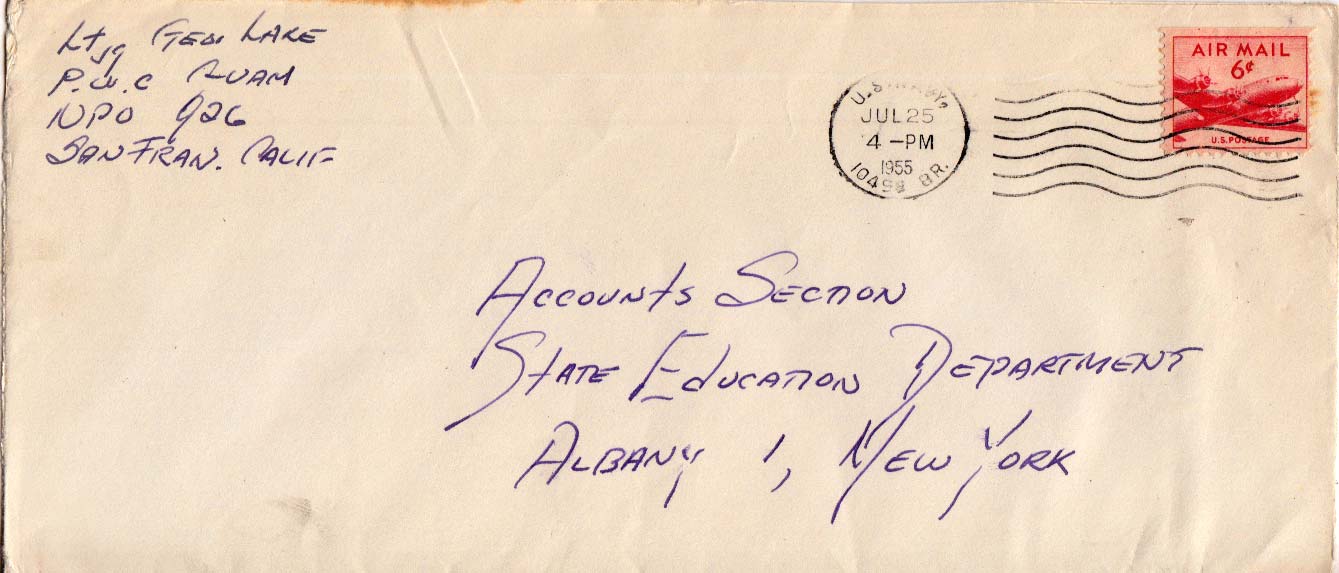 Ltjg Geo Lake
P.W.C Guam
NPO 926
San Fran. Calif
AIR MAIL
6¢
U.S. POSTAGE
U.S. NAVY
JUL 25
4 -PM
1955
BR.
Accounts Section
State Education Department
Albany 1, New York